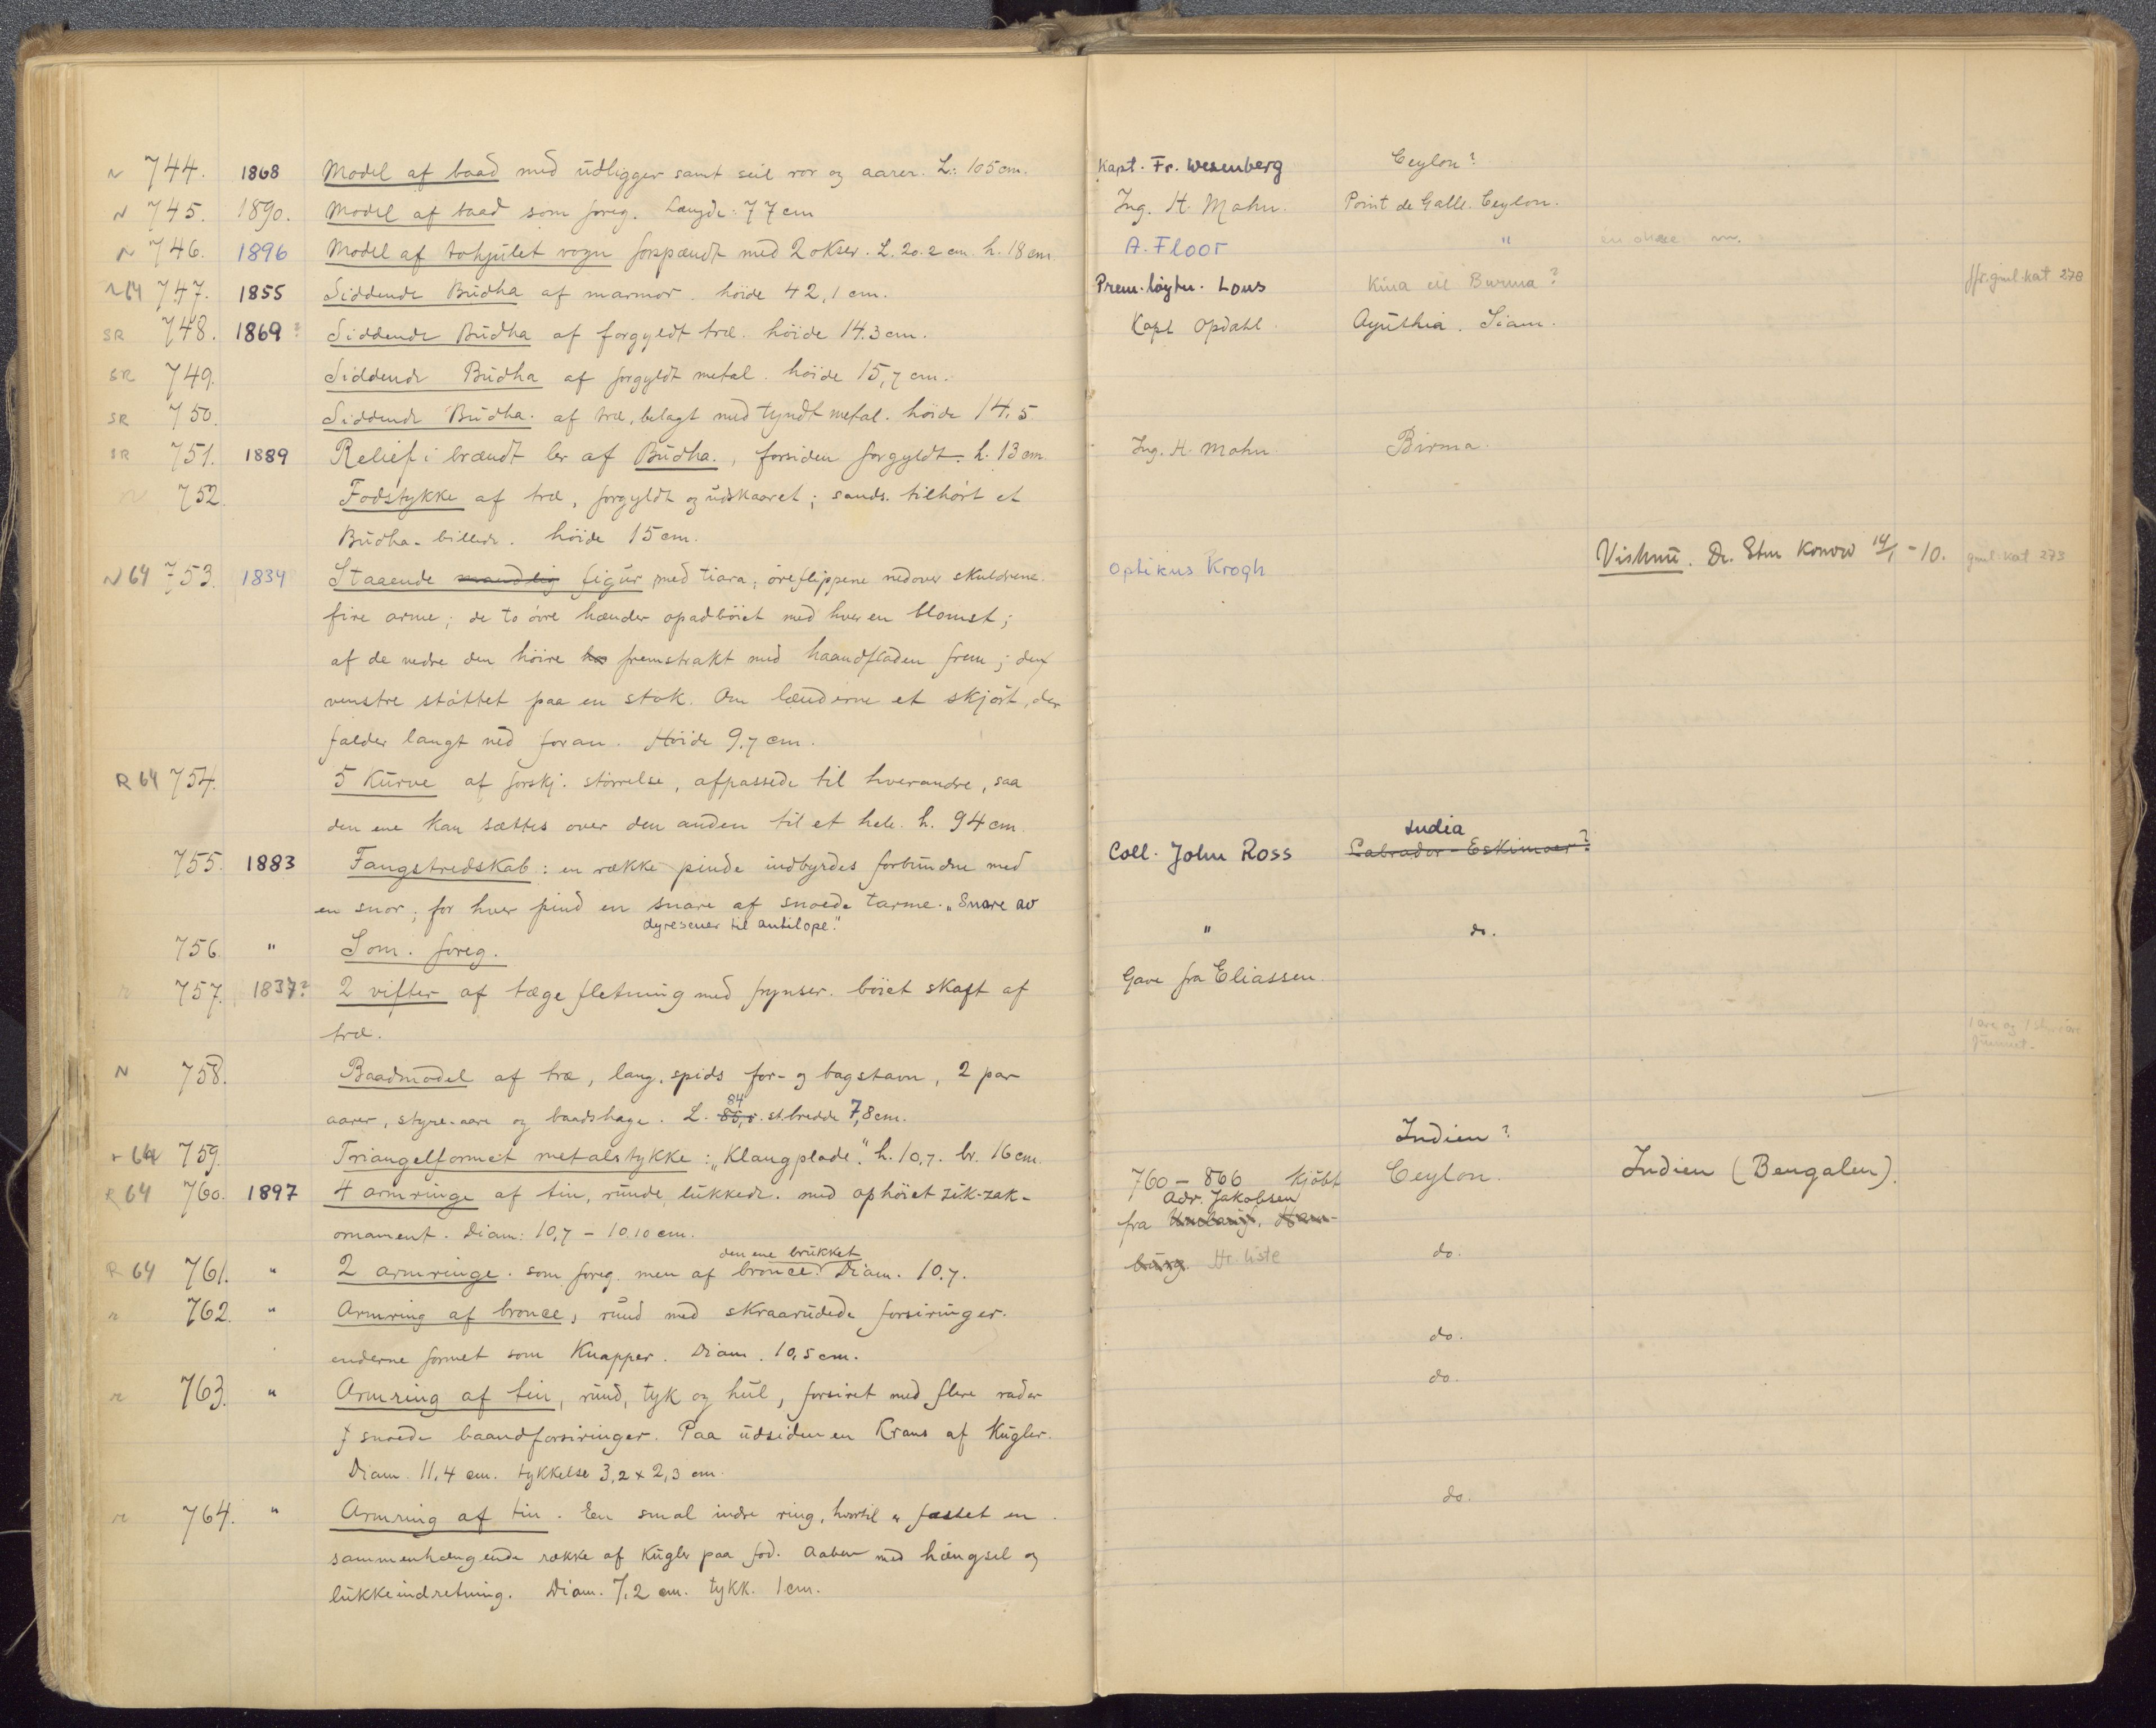 N 744. 1868 Model af baad med udligger samt seil ror og aarer. L: 105 cm. Kapt. Fr. Wesenberg Ceylon?
N 745. 1890. Model af baad som foreg. Længde: 77 cm Ing. H. Mohn. Point de Galle. Ceylon.
N 746. 1896 Model af tohjulet vogn forspændt med 2 okser. L. 20.2 cm. h. 18 cm A. Floor "
N 64 747. 1855 Siddende Budha af marmor. høide 42,1 cm. Prem. løytn. Lous Kina ell Burma? gml. kat 278
SR 748. 1869? Siddende Budha af forgyldt træ. høide 14.3 cm. Kapt Opdahl. Ayuthia. Siam.
SR 749. Siddende Budha af forgyldt metal. høide 15,7 cm.
SR 750. Siddende Budha. af træ, belagt med tyndt metal. høide 14.5
SR 751. 1889 Relief i brændt ler af Budha., forsiden forgyldt. h. 13 cm Ing. H. Mohn. Birma.
N 752. Fodstykke af træ, forgyldt og udskaaret; sands. tilhørt et
Budha-billede. høide 15 cm.
N 64 753. 1834 Staaende mandlig figur med tiara; øreflippene nedover skuldrene. Optikus Krogh Vishnu. Dr. Sten Konow 14/1 -10. gml. kat 273
fire arme; de to øvre hænder opadbøiet med hver en blomst;
af de nedre den høire fremstrakt med haandfladen frem; den
venstre støttet paa en stok. Om lænderne et skjørt, der
falder langt ned foran. Høide 9,7 cm.
R 64 754. 5 Kurve af forskj. størrelse, afpassede til hverandre, saa
den ene kan sættes over den anden til et hele. h. 94 cm.
India
755. 1883 Fangstredskab: en række pinde indbyrdes forbundne med Coll. John Ross Labrador-Eskimoer?
en snor; for hver pind en snare af snoede tarme. "Snare av
dyresener til antilope."
756. " Som. foreg. " do.
757. 1837? 2 vifter af tæge fletning med frynser. bøiet skaft af Gave fra Eliassen.
træ.
N 758. Baadmodel af træ, lang, spids for- og bagstavn, 2 par
84
aarer, styre-aare og baadshage. L. st. bredde 7,8 cm.
r 64 759. Triangelformet metalstykke: "Klangplade". h. 10,7. br. 16 cm. Indien?
R 64 760. 1897 4 armringe af tin, runde, lukkede. med ophøiet zik-zak- 760 – 866 kjøbt Ceylon. Indien (Bengalen).
Adr. Jakobsen
ornament. Diam: 10,7 – 10.10 cm. fra Umlauf, Ham-
den ene brukket
R 64 761. " 2 armringe. som foreg. men af bronce. Diam. 10.7. burg. liste do.
r 762. " Armring af bronce, rund med skraarudede forsiringer.
enderne formet som Knapper. Diam. 10,5 cm. do.
r 763. " Armring af tin, rund, tyk og hul, forsiret med flere rader do.
snoede baandforsiringer. Paa udsiden en Krans af Kugler.
Diam. 11,4 cm. tykkelse 3,2 x 2,3 cm.
r 764. " Armring af tin. En smal indre ring, hvortil er fæstet en do.
sammenhængende række af Kugler paa fod. Aaben med hængsel og
lukkeindretning. Diam. 7,2 cm. tykk. 1 cm.